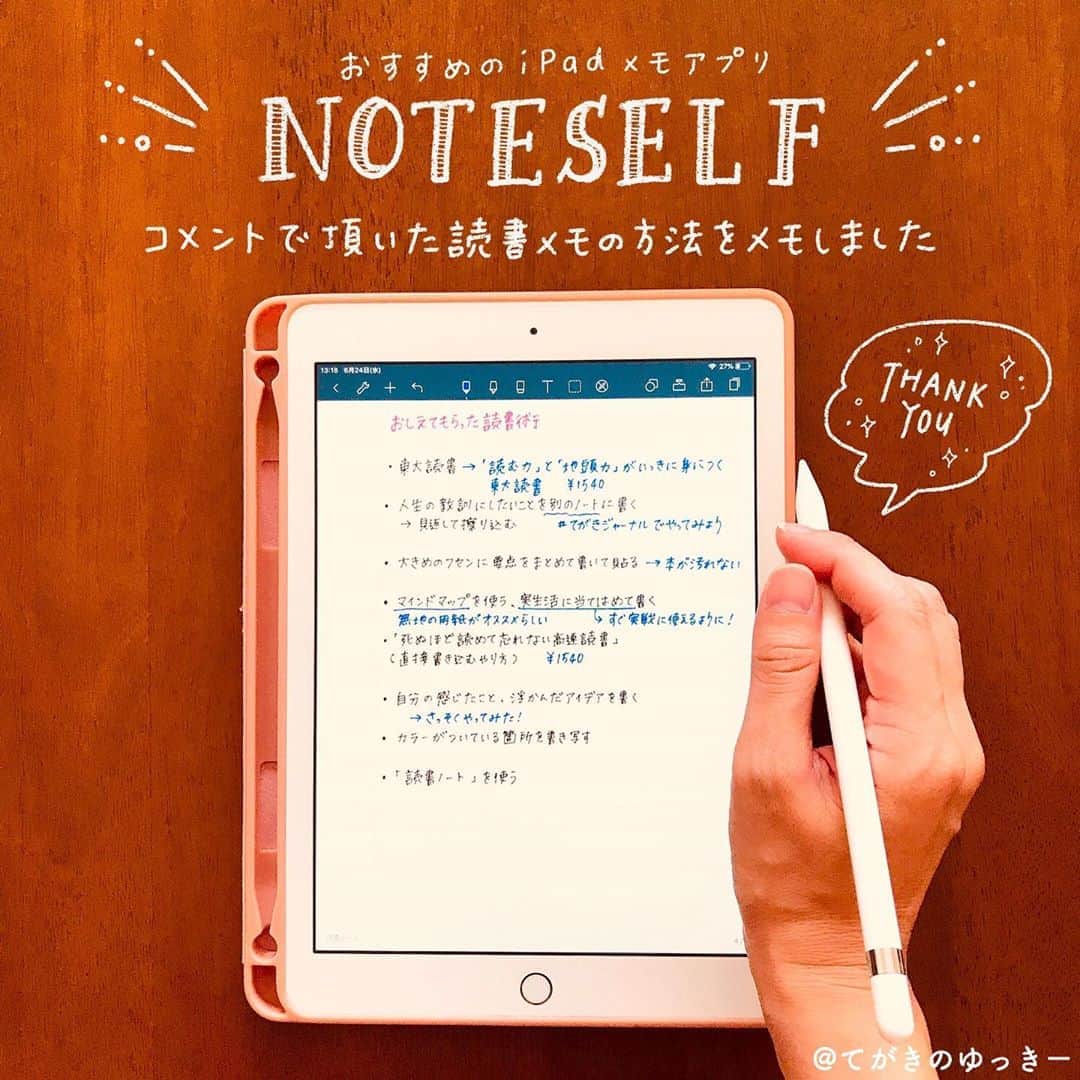 おすすめのiPadメモアプリ
NOTESELF
コメントで頂いた読書メモの方法をメモしました
THANK
YOU
13:18 6月24日(水)
27%
おしえてもらった読書術
・東大読書→「読む力」と「地頭力」がいっきに身につく
東大読書 ¥1540
・人生の教訓にしたいことを別のノートに書く
→見返して擦り込む #てがきジャーナルでやってみよう
・大きめのフセンに要点をまとめて書いて貼る→本が汚れない
・マインドマップを使う、実生活に当てはめて書く
無地の用紙がオススメらしい →すぐ実戦に使えるように!
・「死ぬほど読めて忘れない高速読書」
(直接書き込むやり方) ¥1540
・自分の感じたこと、浮かんだアイデアを書く
→さっそくやってみた!
・カラーがついている箇所を書き写す
・「読書ノート」を使う
@てがきのゆっきー